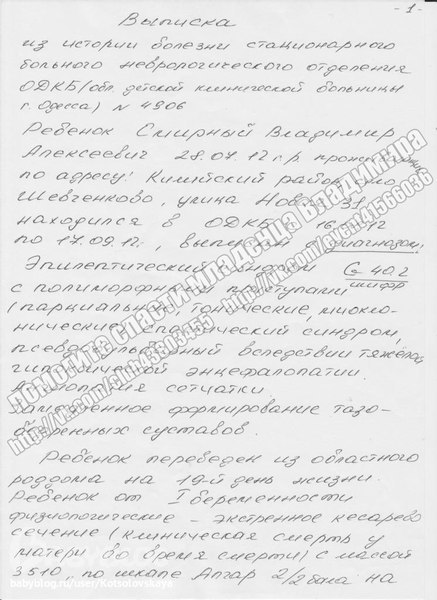 - 1 -
Выписка
из истории болезни стационарного
больного неврологического отделения
ОДКБ (обл. детской клинической больницы
г. Одесса) N 4906
Ребенок Смирный Владимир
Алексеевич 28.07.12 г.р.
по адресу: Килийский район, с.
Шевченково, улица
находился в ОДКБ
по 17.09.12, диагнозом:
Эпилептический синдром G 40.2
с полиморфными приступами шифр
(парциальные, тонические, миокло-
нические, спастический синдром,
вследствии тяжелой
энцефалопатии.
сетчатки.
формирование тазо-
бедренных суставов.
Ребенок переведен из областного
роддома на 19-й день жизни.
Ребенок от I беременности
физиологические - экстренное кесарево
сечение (клиническая смерть у
матери во время смерти) с массой
3510, по шкале Апгар 2/2 бала на
ПОМОГИТЕ СПАСТИ МЛАДЕНЦА ВЛАДИМИРА
http://vk.com/club33803453 - http://vk.com/event41566036
babyblog.ru/user/Kotsotovskaya